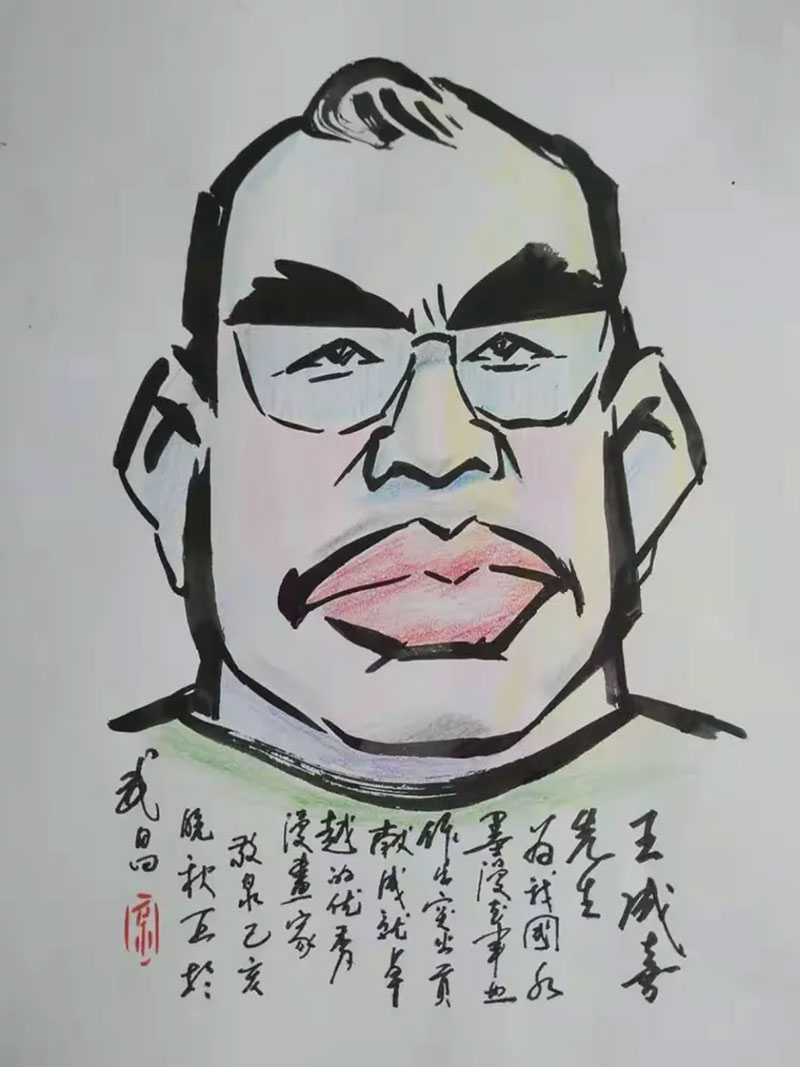 王成喜
先生
为我國水
墨漫艺事业
作出突出贡
献成就卓
越的优秀
漫畫家
敬泉己亥
晚秋於
武昌